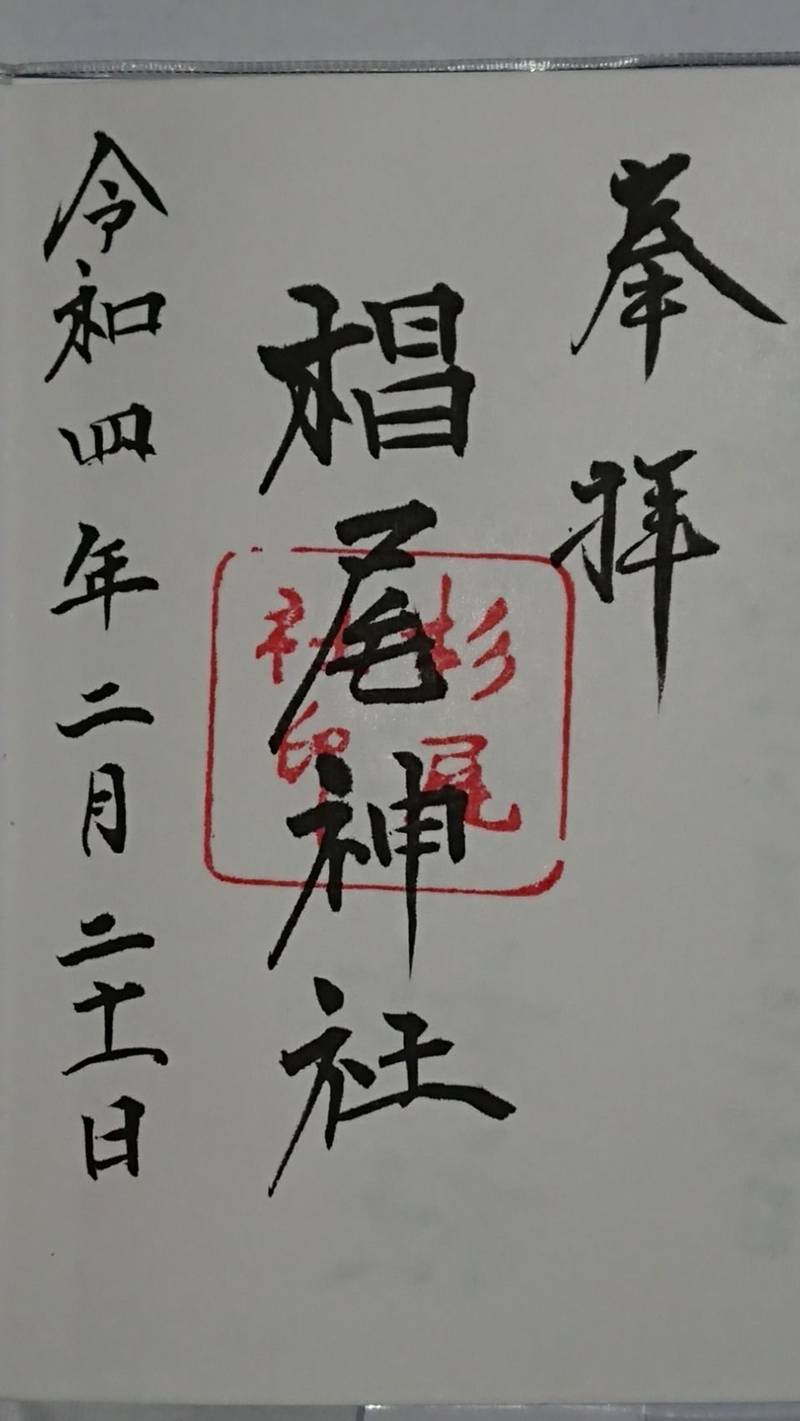 奉拝
椙尾神社
杉尾
社印
令和四年二月二十一日